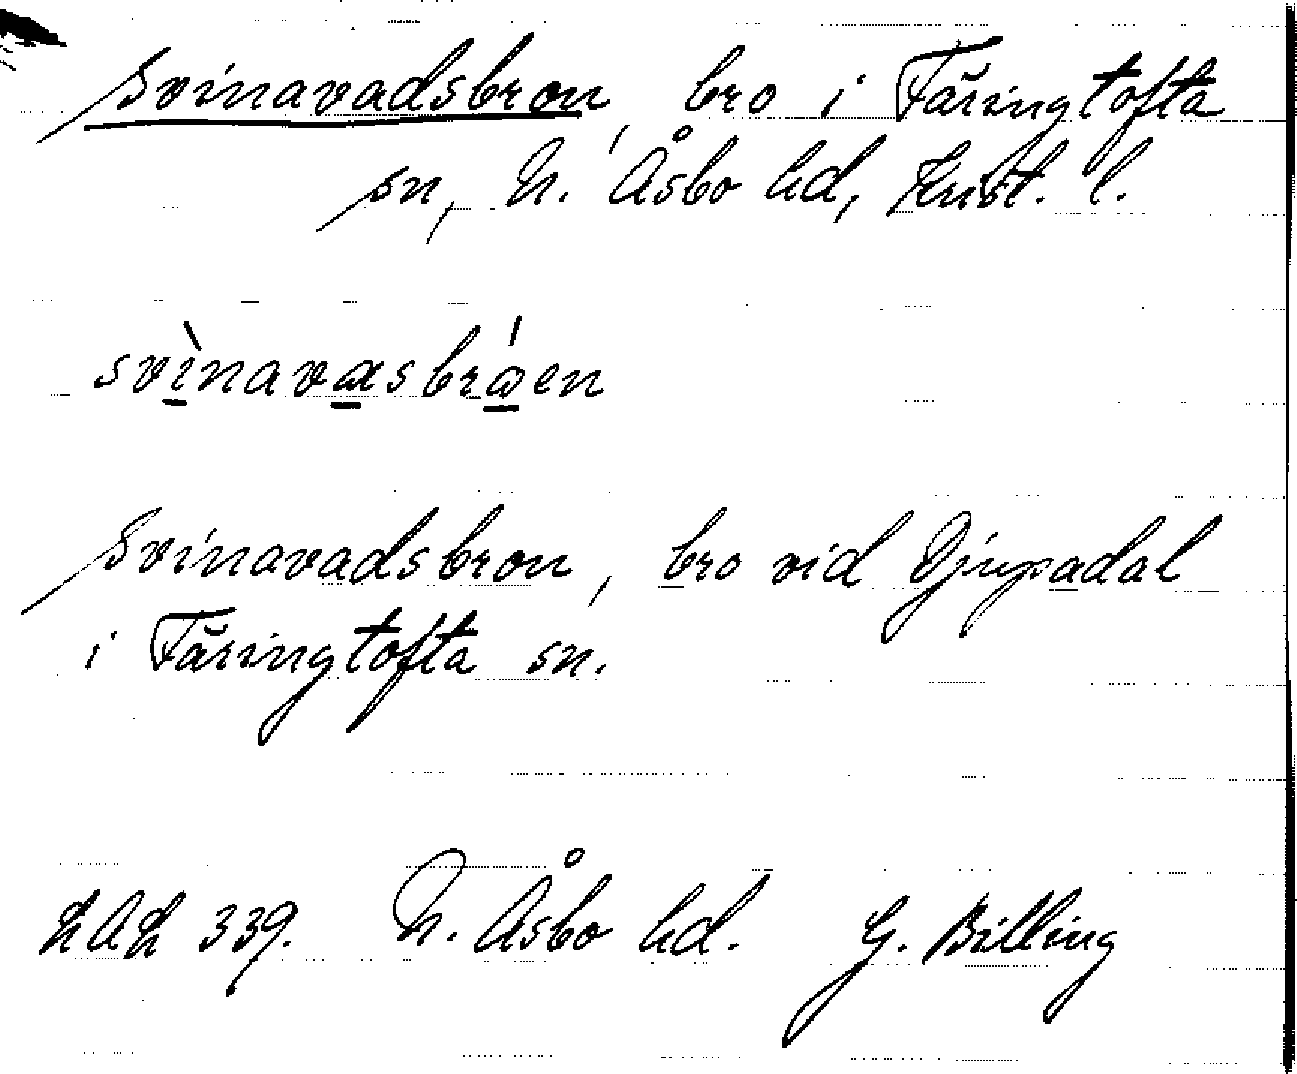 Svinavadsbron, bro i Färingtofta
sn, N. Åsbo hd, Krist. l.
svìnavasbrǻen
Svinavadsbron, bro vid Djupadal
i Färingtofta sn.
LAL 339. N. Åsbo hd. G. Billing